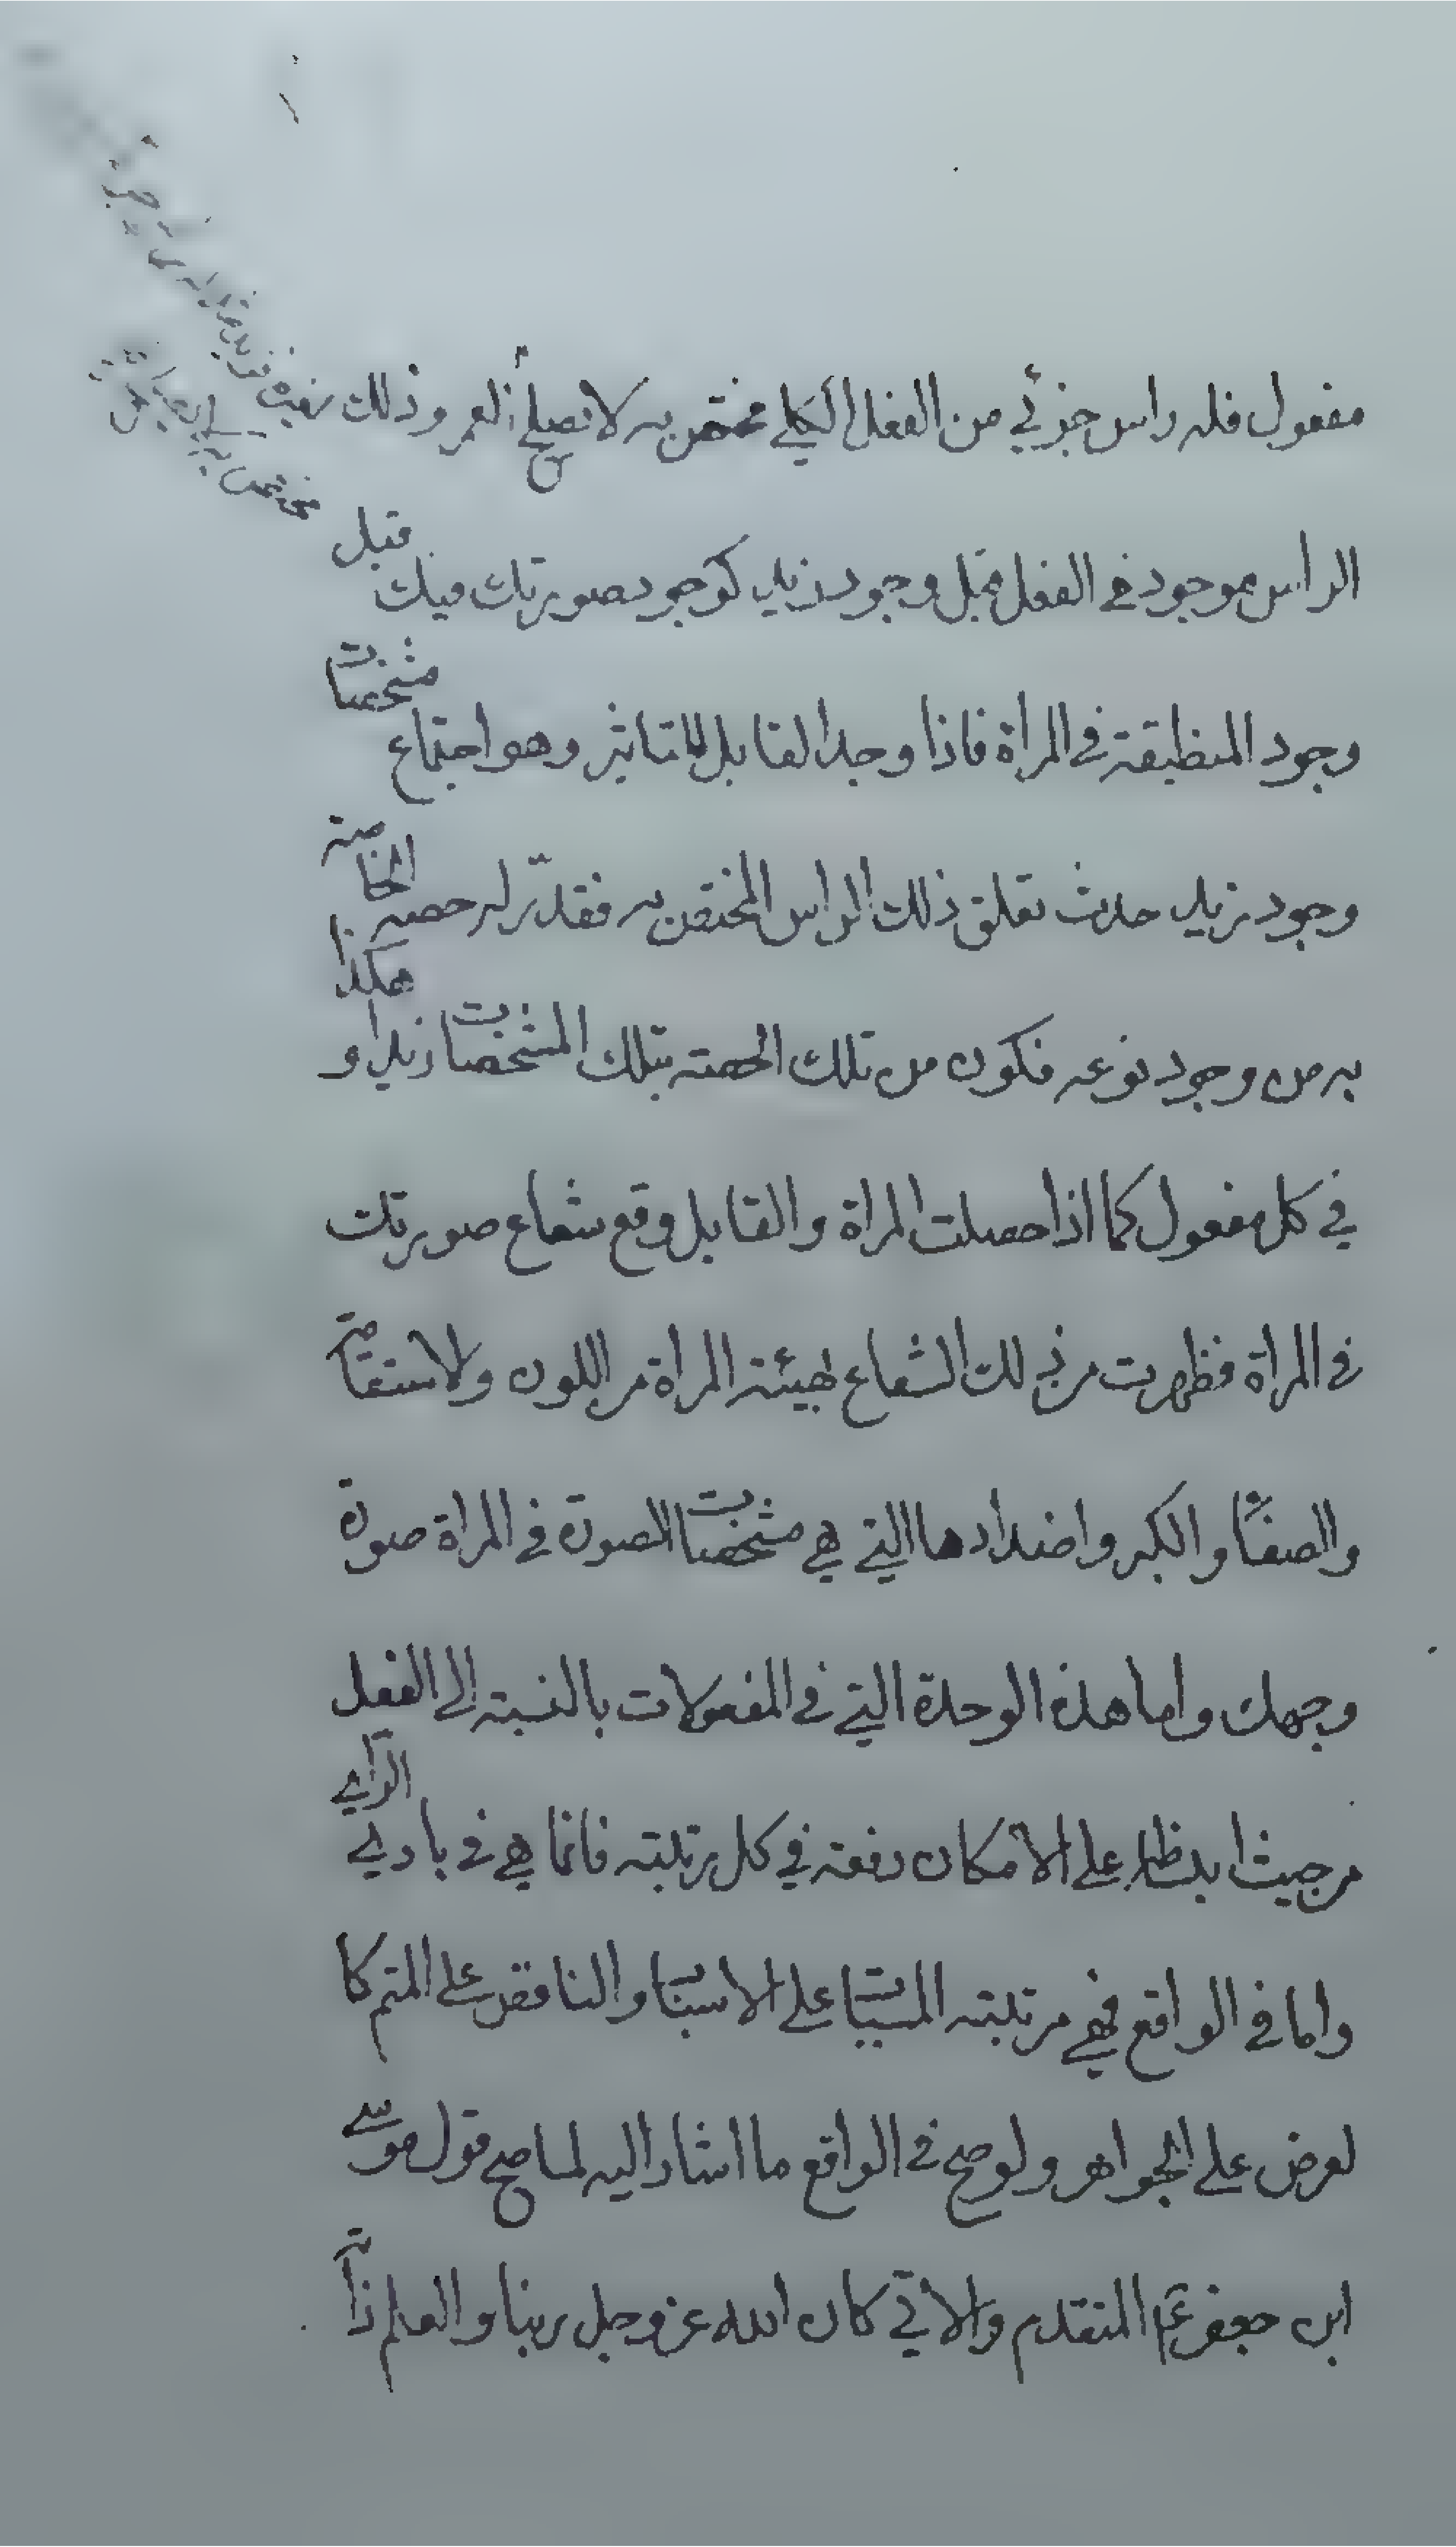 مفعول فله راس جزئي من الفعل الكلي مختص به لا يصلح لعمر وذلك
الراس موجود في الفعل قبل وجود زيد كوجود صورتك فيك قبل
وجود المنطبقة في المرأة فاذا وجد القابل للتاثير وهو اجتماع مشخصات
وجود زيد حدث تعلق ذلك الراس المختص به فقدّر له حصه الخاصة
به من وجود نوعه فكون من تلك الحصته بتلك المشخصات زيدا و هكذا
في كل مفعول كما اذا حصلت المراة والقابل وقع شعاع صورتك
في المراة فظهرت من ذلك الشعاع لهيئة المراة من اللون ولاستقامة
والصفا والكبر واضدادها التي هي مشخصات الصورة في المراة صورة
وجهك واما هذه الوحدة التي في المفعولات بالنسبة الى الفعل
من حيث على الامكان دفعة في كل مرتبته فانما هي في بادي الرأي
واما في الواقع فهي مرتبته المسببات على الاسباب والناقص على المتم كا
لعرض على الجواهر ولو صح في الواقع ما اشار اليه لما صح قول موسى
ابن جعفر ع المتقدم والاتي كان الله عز وجل ربنا والعلم ذاته